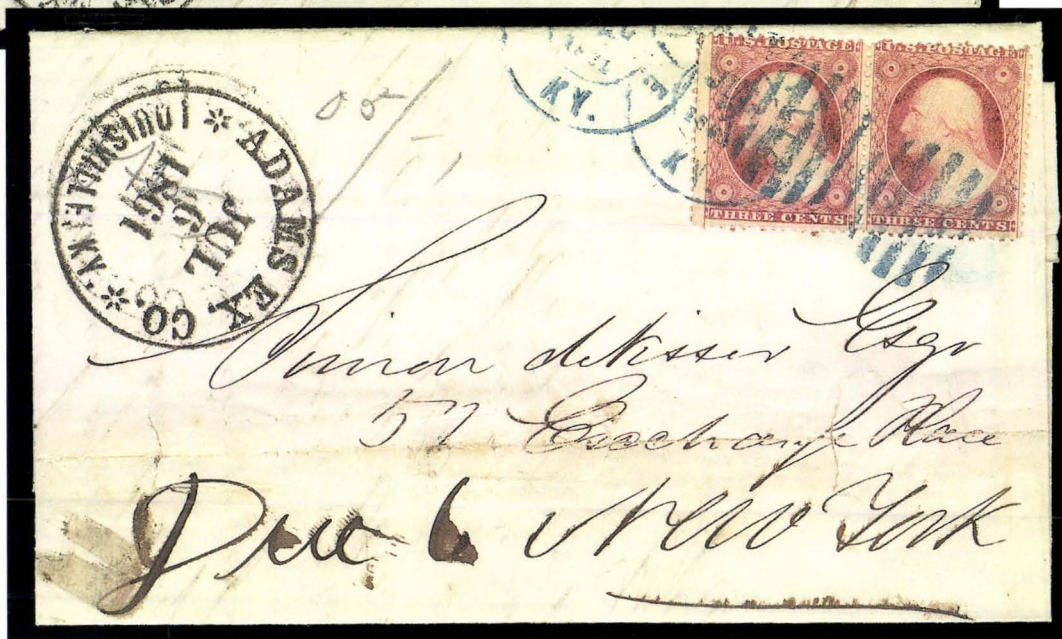 * ADAMS EX. CO. * LOUISVILLE KY.
JUL
1861
KY.
U.S. POSTAGE
THREE CENTS
U.S. POSTAGE
THREE CENTS
Simon deVisser Esqr
Exchange Place
Due 6 New York